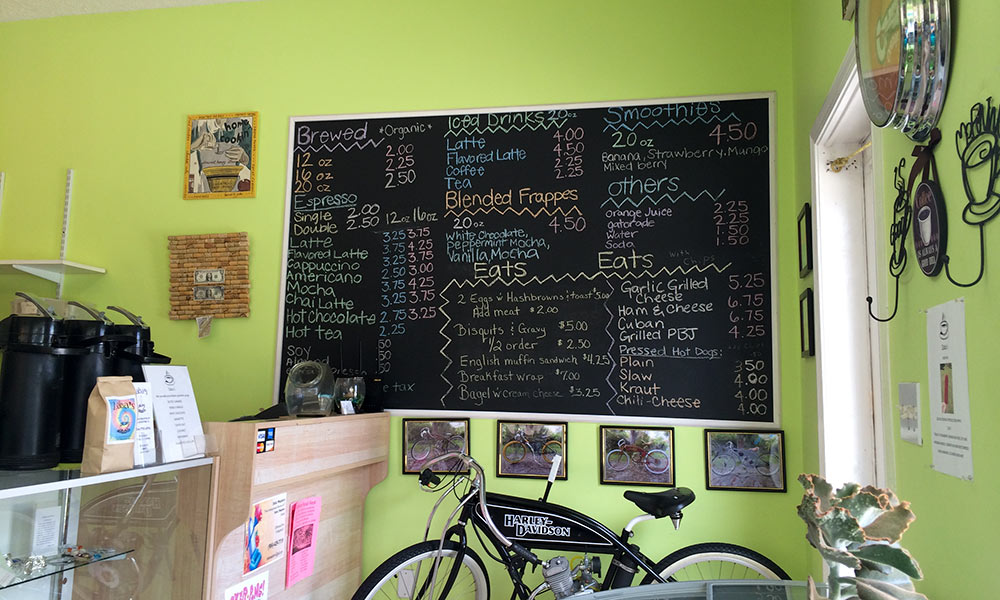 Brewed *Organic*
12 oz 2.00
16 oz 2.25
20 oz 2.50
Espresso
Single 2.00
Double 2.50 12oz 16oz
Latte 3.25 3.75
Flavored Latte 3.75 4.25
Cappuccino 3.25 3.75
Americano 2.50 3.00
Mocha 3.75 4.25
Chai Latte 3.25 3.75
Hot chocolate 2.75 3.25
Hot tea 2.25
Soy 50
Iced Drinks 20oz
Latte 4.00
Flavored Latte 4.50
Coffee 2.25
Tea 2.25
Blended Frappes
20oz 4.50
White Chocolate,
Peppermint Mocha,
Vanilla Mocha
Smoothies
20 oz 4.50
Banana, Strawberry, Mango
Mixed berry
others
orange Juice 2.25
gatorade 2.25
Water 1.50
Soda 1.50
Eats
2 Eggs w Hashbrowns & toast $5.00
Add meat $2.00
Bisquits & Gravy $5.00
1/2 order $2.50
English muffin sandwich $4.25
Breakfast wrap $7.00
Bagel w cream cheese $3.25
Eats with Chips
Garlic Grilled Cheese 5.25
Ham & Cheese 6.75
Cuban 6.75
Grilled PBJ 4.25
Pressed Hot Dogs:
Plain 3.50
Slaw 4.00
Kraut 4.00
Chili-Cheese 4.00
tax
HARLEY-DAVIDSON
VISA